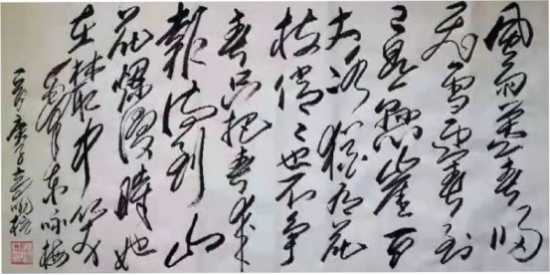 風雨送春歸
飛雪迎春到
已是懸崖百
丈冰猶有花
枝俏々也不争
春只把春來
報待到山
花爛漫時她
在叢中笑
毛澤東詠梅
庚子